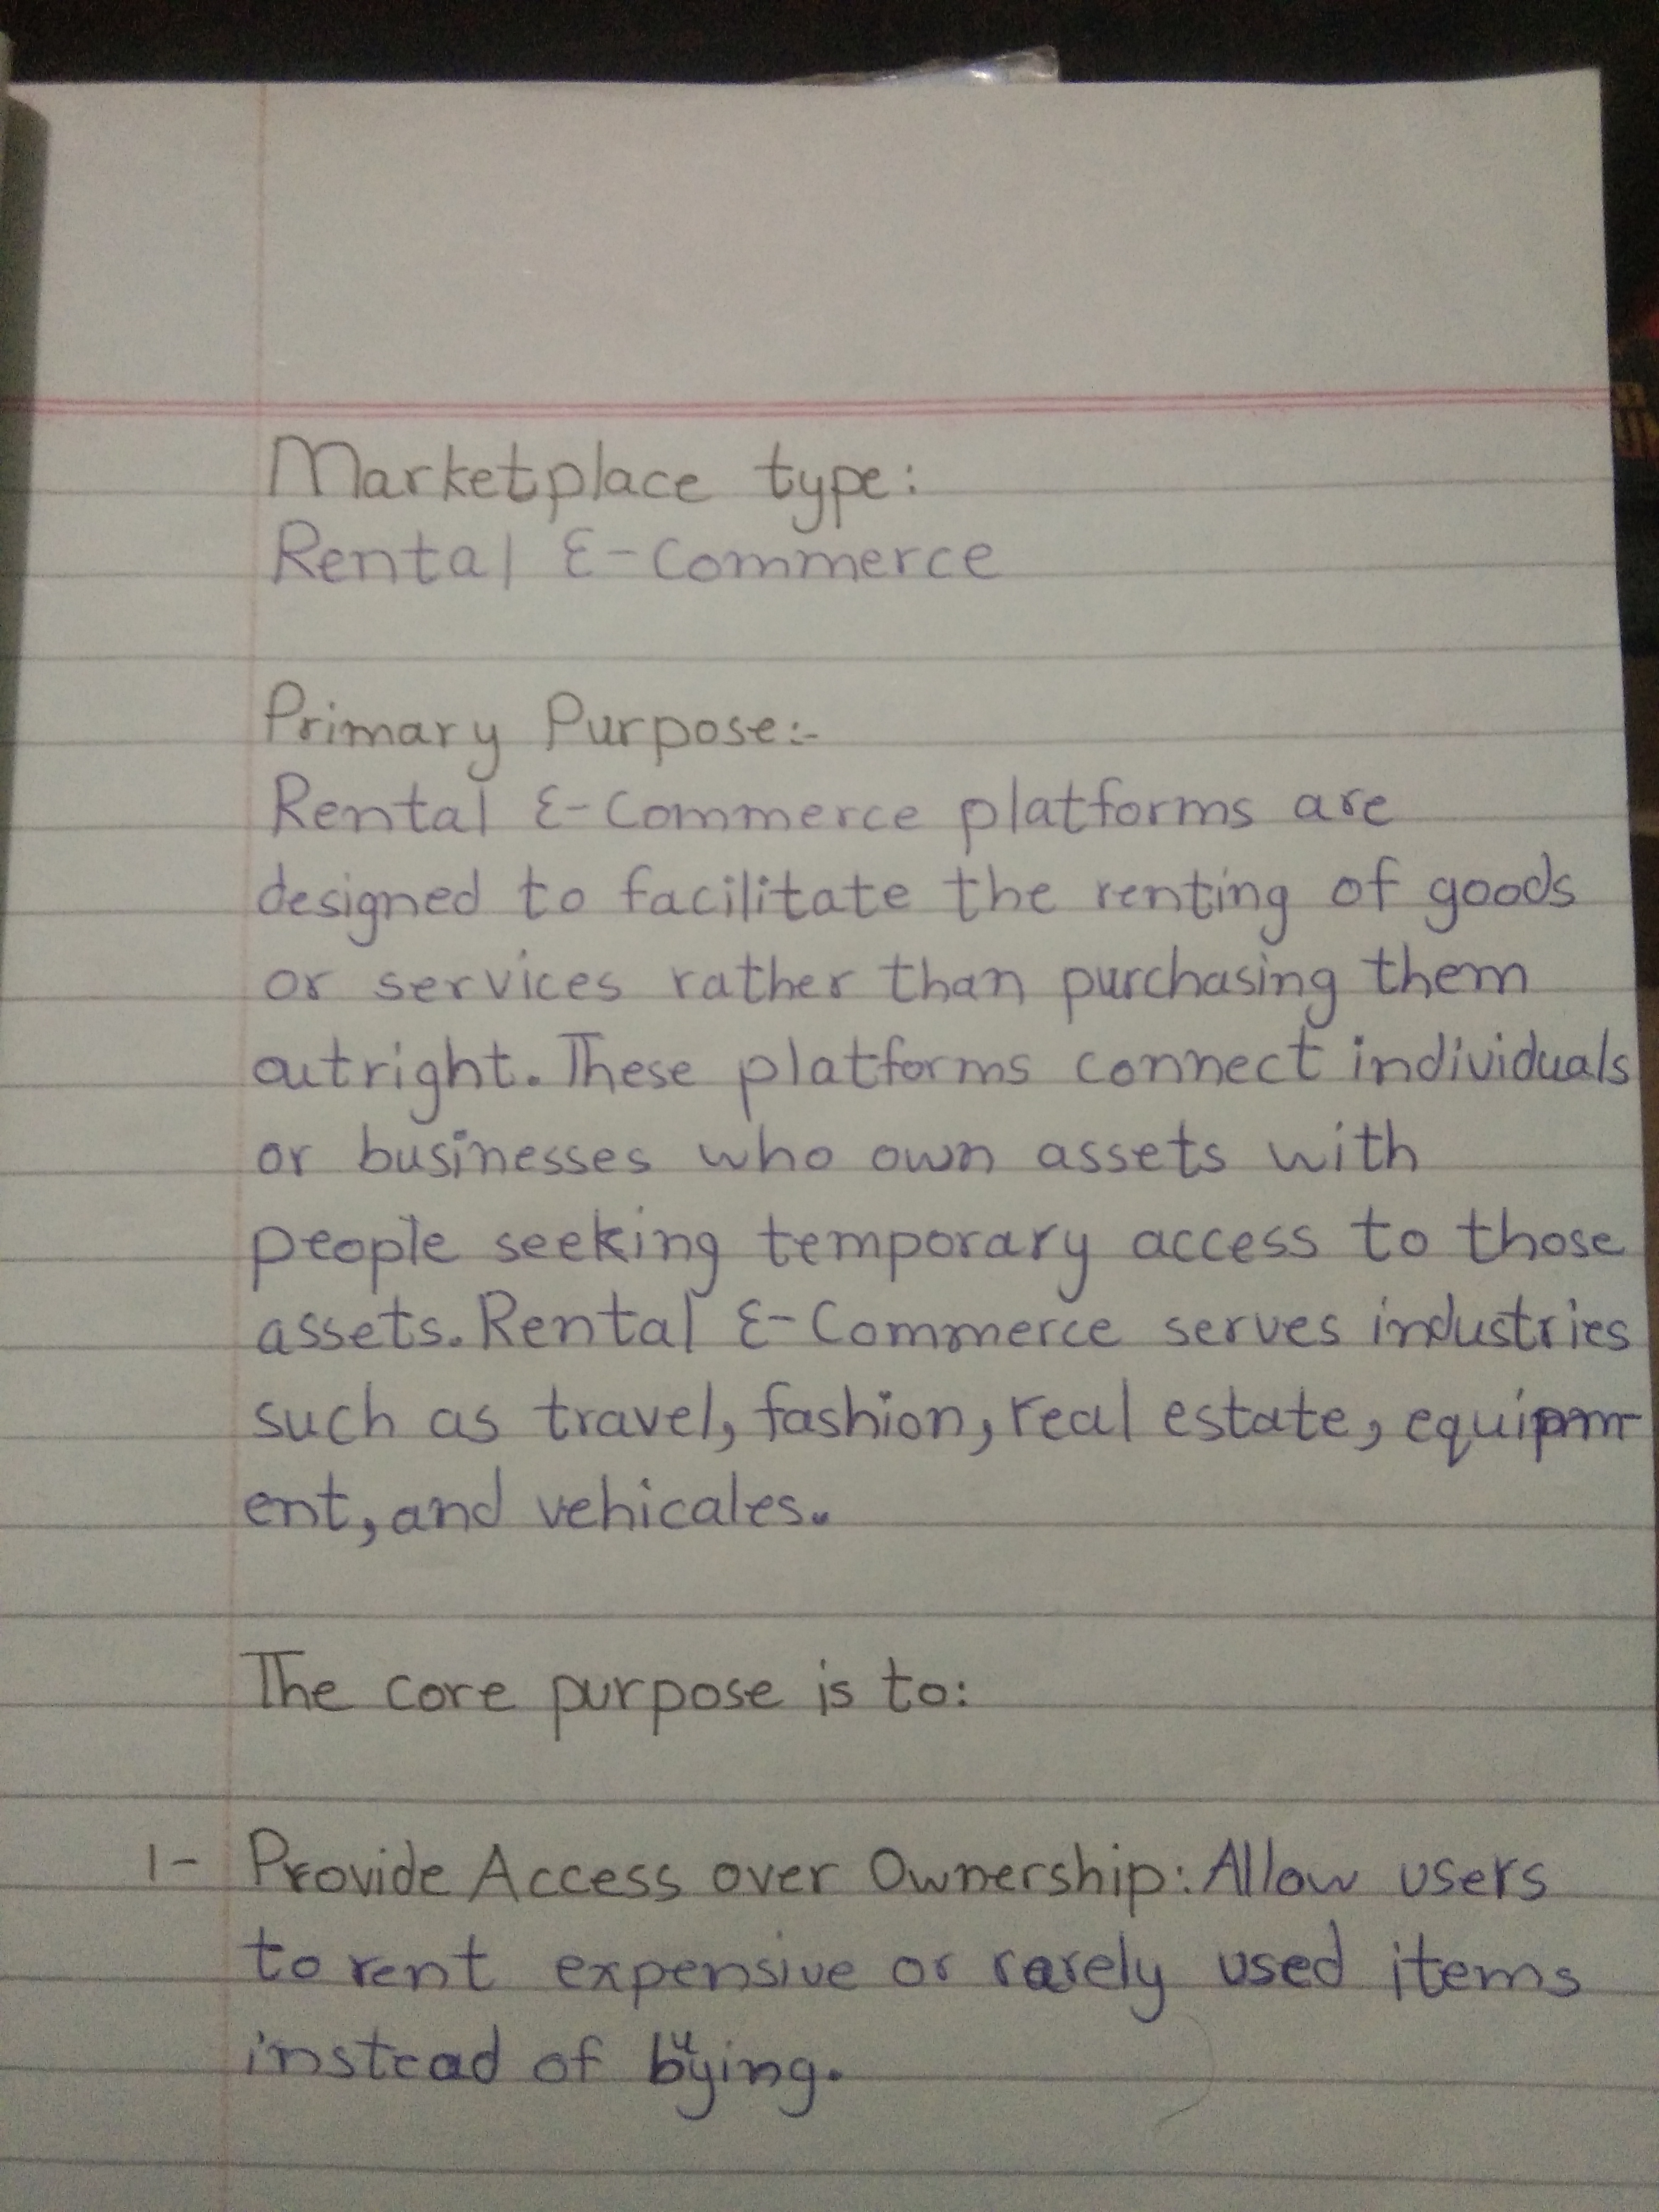 Marketplace type:
Rental E-Commerce
Primary Purpose:-
Rental E-Commerce platforms are
designed to facilitate the renting of goods
or services rather than purchasing them
outright. These platforms connect individuals
or businesses who own assets with
people seeking temporary access to those
assets. Rental E-Commerce serves industries
such as travel, fashion, real estate, equipm-
ent, and vehicales.
The core purpose is to:
1- Provide Access over Ownership: Allow users
to rent expensive or rarely used items
instead of buying.